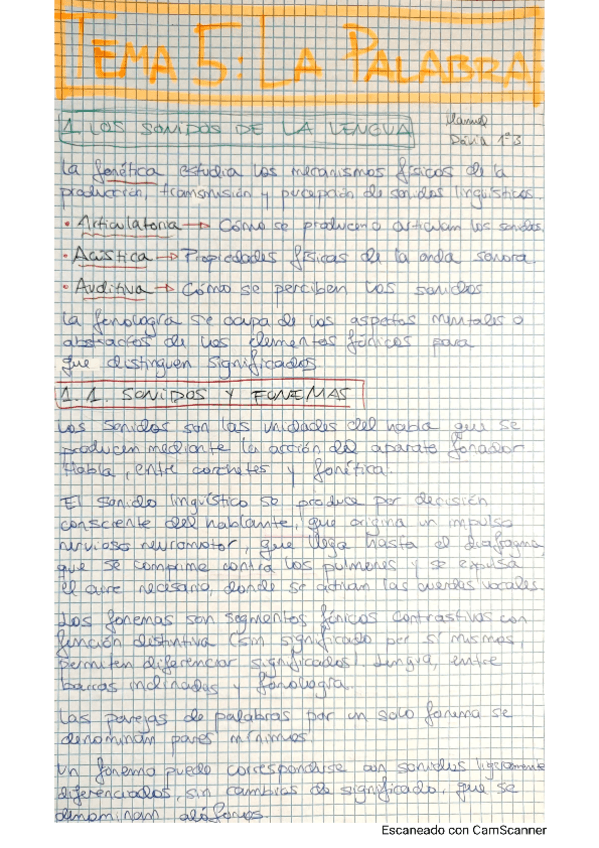 TEMA 5: LA PALABRA
1 LOS SONIDOS DE LA LENGUA
Manuel
Dávia 1º3
La fonética estudia los mecanismos físicos de la
producción, transmisión y percepción de sonidos lingüísticos.
• Articulatoria → Cómo se producen o articulan los sonidos.
• Acústica → Propiedades físicas de la onda sonora.
• Auditiva → Cómo se perciben los sonidos
La fonología se ocupa de los aspectos mentales o
abstractos de los elementos fónicos para
que distinguen significados
1.1. SONIDOS Y FONEMAS
Los sonidos son las unidades del habla que se
producen mediante la acción del aparato fonador.
Habla, entre corchetes y fonética.
El sonido lingüístico se produce por decisión
consciente del hablante, que origina un impulso
nervioso neuromotor, que llega hasta el diafragma,
que se comprime contra los pulmones y se expulsa
el aire necesario, donde se activan las cuerdas vocales.
Los fonemas son segmentos fónicos contrastivos con
función distintiva (sin significado por sí mismos,
permiten diferenciar significados). Lengua, entre
barras inclinadas y fonología.
Las parejas de palabras por un solo fonema se
denominan pares mínimos.
Un fonema puede corresponderse con sonidos ligeramente
diferenciados, sin cambios de significado, que se
denominan alófonos.
Escaneado con CamScanner